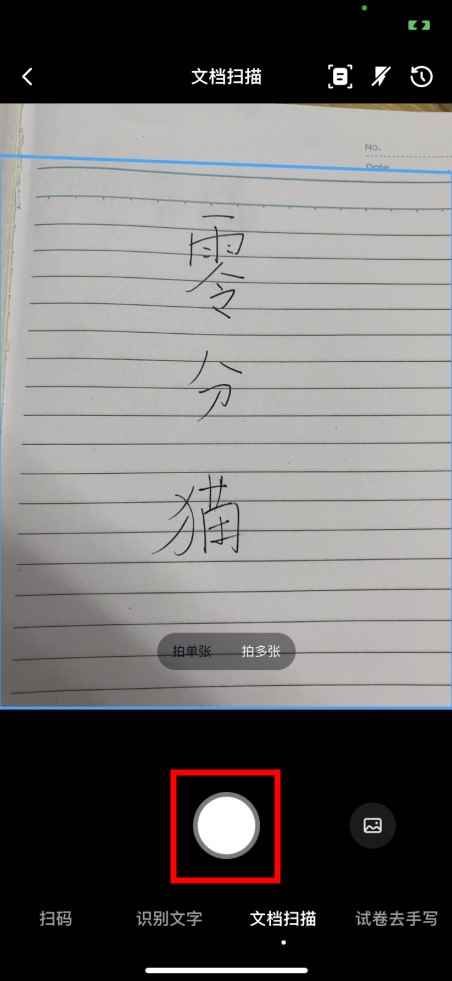 文档扫描
No.
Date
零
分
猫
拍单张 拍多张
扫码 识别文字 文档扫描 试卷去手写